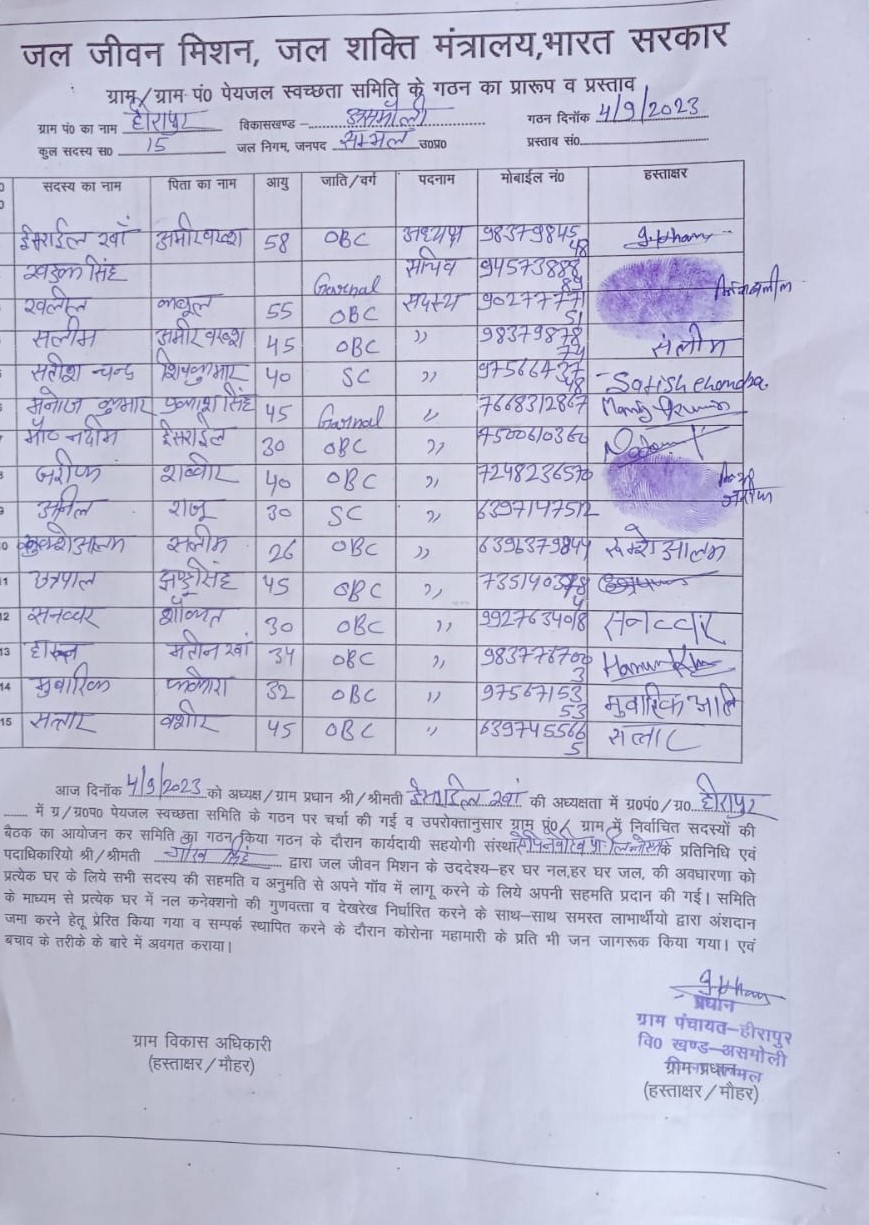 जल जीवन मिशन, जल शक्ति मंत्रालय,भारत सरकार
ग्राम/ग्राम पं0 पेयजल स्वच्छता समिति के गठन का प्रारूप व प्रस्ताव
ग्राम पं0 का नाम हीरापुर विकासखण्ड - असमोली गठन दिनॉक 4/9/2023
कुल सदस्य स0 15 जल निगम, जनपद सम्भल उ0प्र0 प्रस्ताव सं0
सदस्य का नाम पिता का नाम आयु जाति/वर्ग पदनाम मोबाईल नं0 हस्ताक्षर
ईसराईल खाँ अमीर वख्श 58 OBC अध्यक्ष 9837984548
सिंह सचिव 9457388889
खलील 55 OBC सदस्य 9027777151
सलीम अमीर वख्श 45 OBC ,, 9837987874 सलीम
सतीश चन्द्र शिवकुमार 40 SC ,, 9756643748 Satish Chandra.
मनोज कुमार प्रकाश सिंह 45 ,, 7668312867
मौ0 नदीम ईसराईल 30 OBC ,, 7500610360
शब्बीर 40 OBC ,, 7248236570
अनील राजू 30 SC ,, 6397147512
सलीम 26 OBC ,, 6396379844
10
11 छत्रपाल सिंह 45 OBC ,,
12 सनव्वर शौकत 30 OBC ,, 9927634018 सनव्वर
13 हारून मतीन खां 34 OBC ,, 9837767003
14 मुवारिक 32 OBC ,, 9756715353 मुवारिक
15 सत्तार वशीर 45 OBC ,, 6397455665
आज दिनॉक 4/9/2023 को अध्यक्ष/ग्राम प्रधान श्री/श्रीमती ईसराईल खां की अध्यक्षता में ग्र0पं0/ग्र0 हीरापुर
में ग्र/ग्र0प0 पेयजल स्वच्छता समिति के गठन पर चर्चा की गई व उपरोक्तानुसार ग्राम पं0/ ग्राम में निर्वाचित सदस्यों की
बैठक का आयोजन कर समिति का गठन किया गठन के दौरान कार्यदायी सहयोगी संस्था के प्रतिनिधि एवं
पदाधिकारियो श्री/श्रीमती सिंह द्वारा जल जीवन मिशन के उददेश्य–हर घर नल,हर घर जल, की अवधारणा को
प्रत्येक घर के लिये सभी सदस्य की सहमति व अनुमति से अपने गॉव में लागू करने के लिये अपनी सहमति प्रदान की गई। समिति
के माध्यम से प्रत्येक घर में नल कनेक्शनो की गुणवत्ता व देखरेख निर्धारित करने के साथ–साथ समस्त लाभार्थीयो द्वारा अंशदान
जमा करने हेतू प्रेरित किया गया व सम्पर्क स्थापित करने के दौरान कोरोना महामारी के प्रति भी जन जागरूक किया गया। एवं
बचाव के तरीके के बारे में अवगत कराया।
प्रधान
ग्राम पंचायत–हीरापुर
वि0 खण्ड–असमोली
ग्राम विकास अधिकारी ग्राम प्रधान
(हस्ताक्षर/मौहर) (हस्ताक्षर/मौहर)